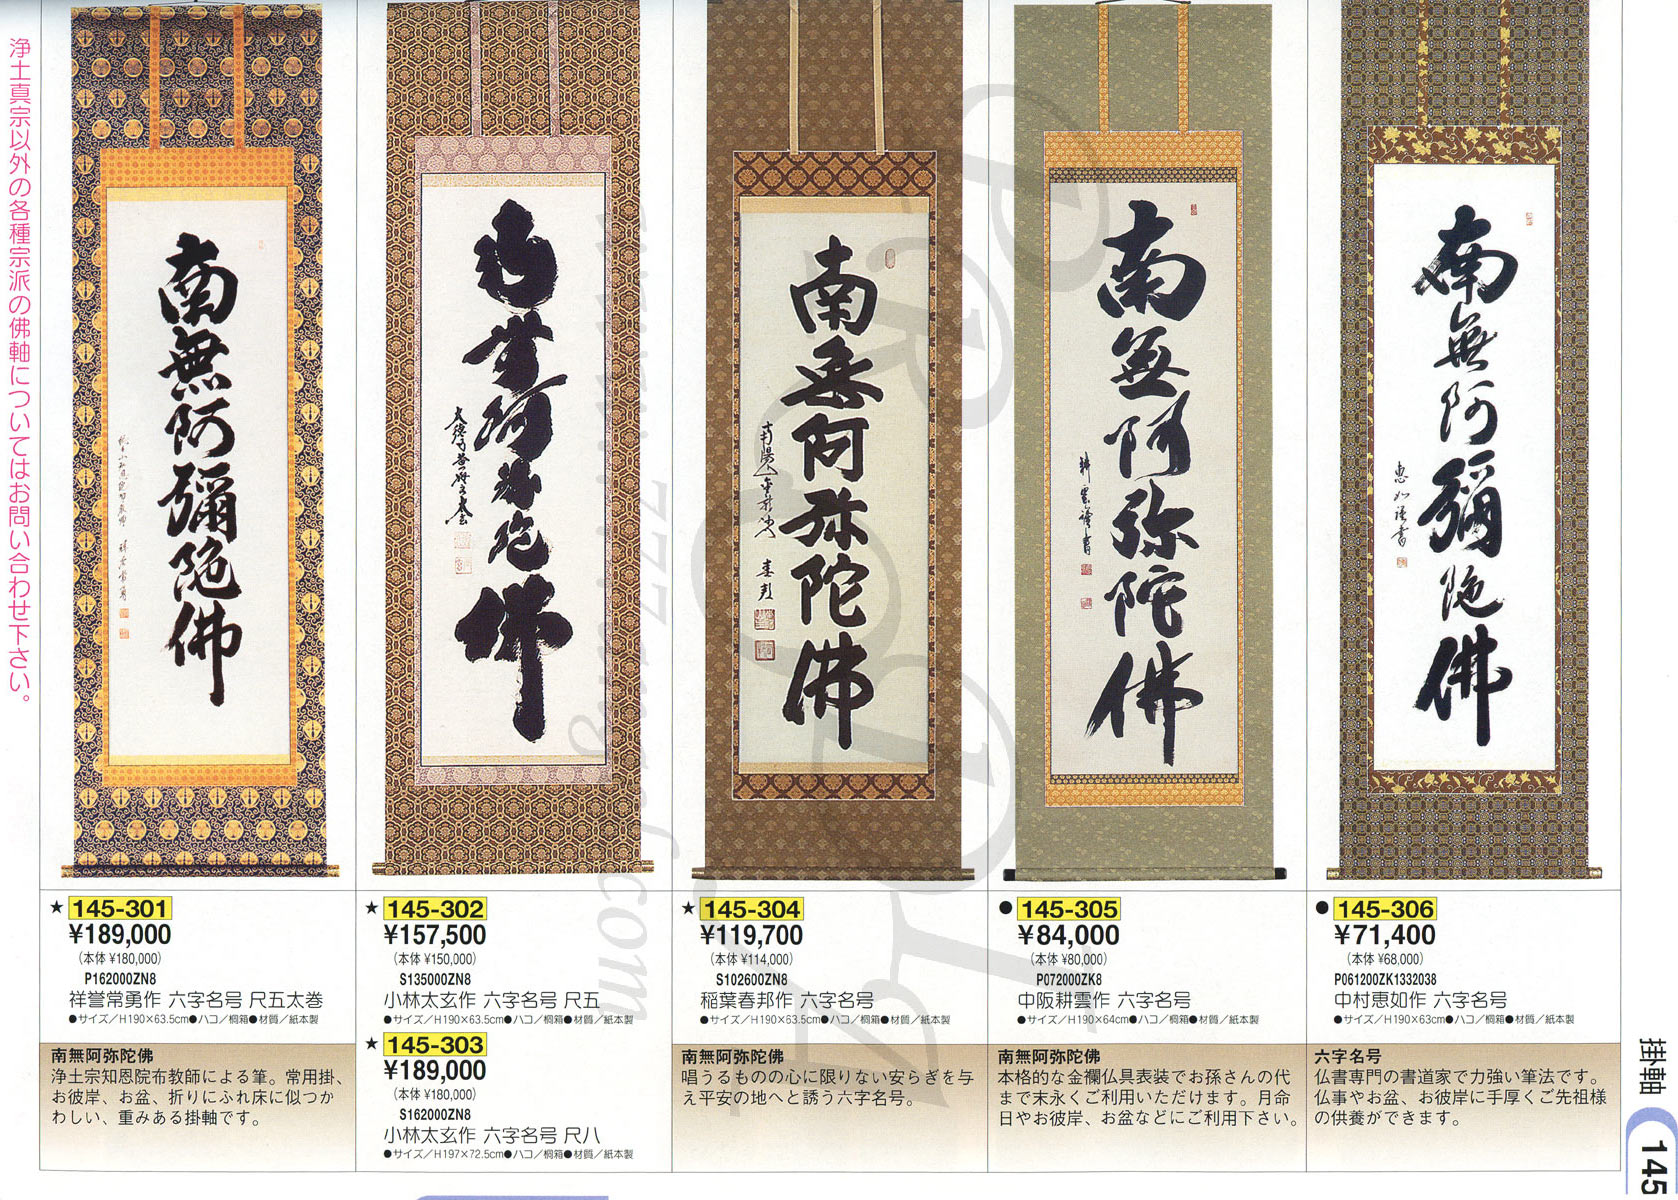 浄土真宗以外の各種宗派の佛軸についてはお問い合わせ下さい。
南無阿彌陀佛
南無阿弥陀佛
南無阿弥陀佛
南無阿弥陀佛
耕雲謹書
南無阿彌陀佛
恵如謹書
★145-301
¥189,000
(本体 ¥180,000)
P162000ZN8
祥誉常勇作 六字名号 尺五太巻
●サイズ／H190×63.5cm●ハコ／桐箱●材質／紙本製
南無阿弥陀佛
浄土宗知恩院布教師による筆。常用掛、
お彼岸、お盆、折りにふれ床に似つか
わしい、重みある掛軸です。
★145-302
¥157,500
(本体 ¥150,000)
S135000ZN8
小林太玄作 六字名号 尺五
●サイズ／H190×63.5cm●ハコ／桐箱●材質／紙本製
★145-303
¥189,000
(本体 ¥180,000)
S162000ZN8
小林太玄作 六字名号 尺八
●サイズ／H197×72.5cm●ハコ／桐箱●材質／紙本製
★145-304
¥119,700
(本体 ¥114,000)
S102600ZN8
稲葉春邦作 六字名号
●サイズ／H190×63.5cm●ハコ／桐箱●材質／紙本製
南無阿弥陀佛
唱うるものの心に限りない安らぎを与
え平安の地へと誘う六字名号。
●145-305
¥84,000
(本体 ¥80,000)
P072000ZK8
中阪耕雲作 六字名号
●サイズ／H190×64cm●ハコ／桐箱●材質／紙本製
南無阿弥陀佛
本格的な金襴仏具表装でお孫さんの代
まで末永くご利用いただけます。月命
日やお彼岸、お盆などにご利用下さい。
●145-306
¥71,400
(本体 ¥68,000)
P061200ZK1332038
中村恵如作 六字名号
●サイズ／H190×63cm●ハコ／桐箱●材質／紙本製
六字名号
仏書専門の書道家で力強い筆法です。
仏事やお盆、お彼岸に手厚くご先祖様
の供養ができます。
掛軸
145